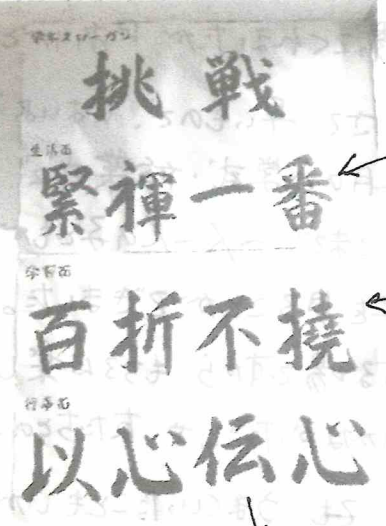 学年スローガン
挑戦
生活面
緊褌一番
学習面
百折不撓
行事面
以心伝心